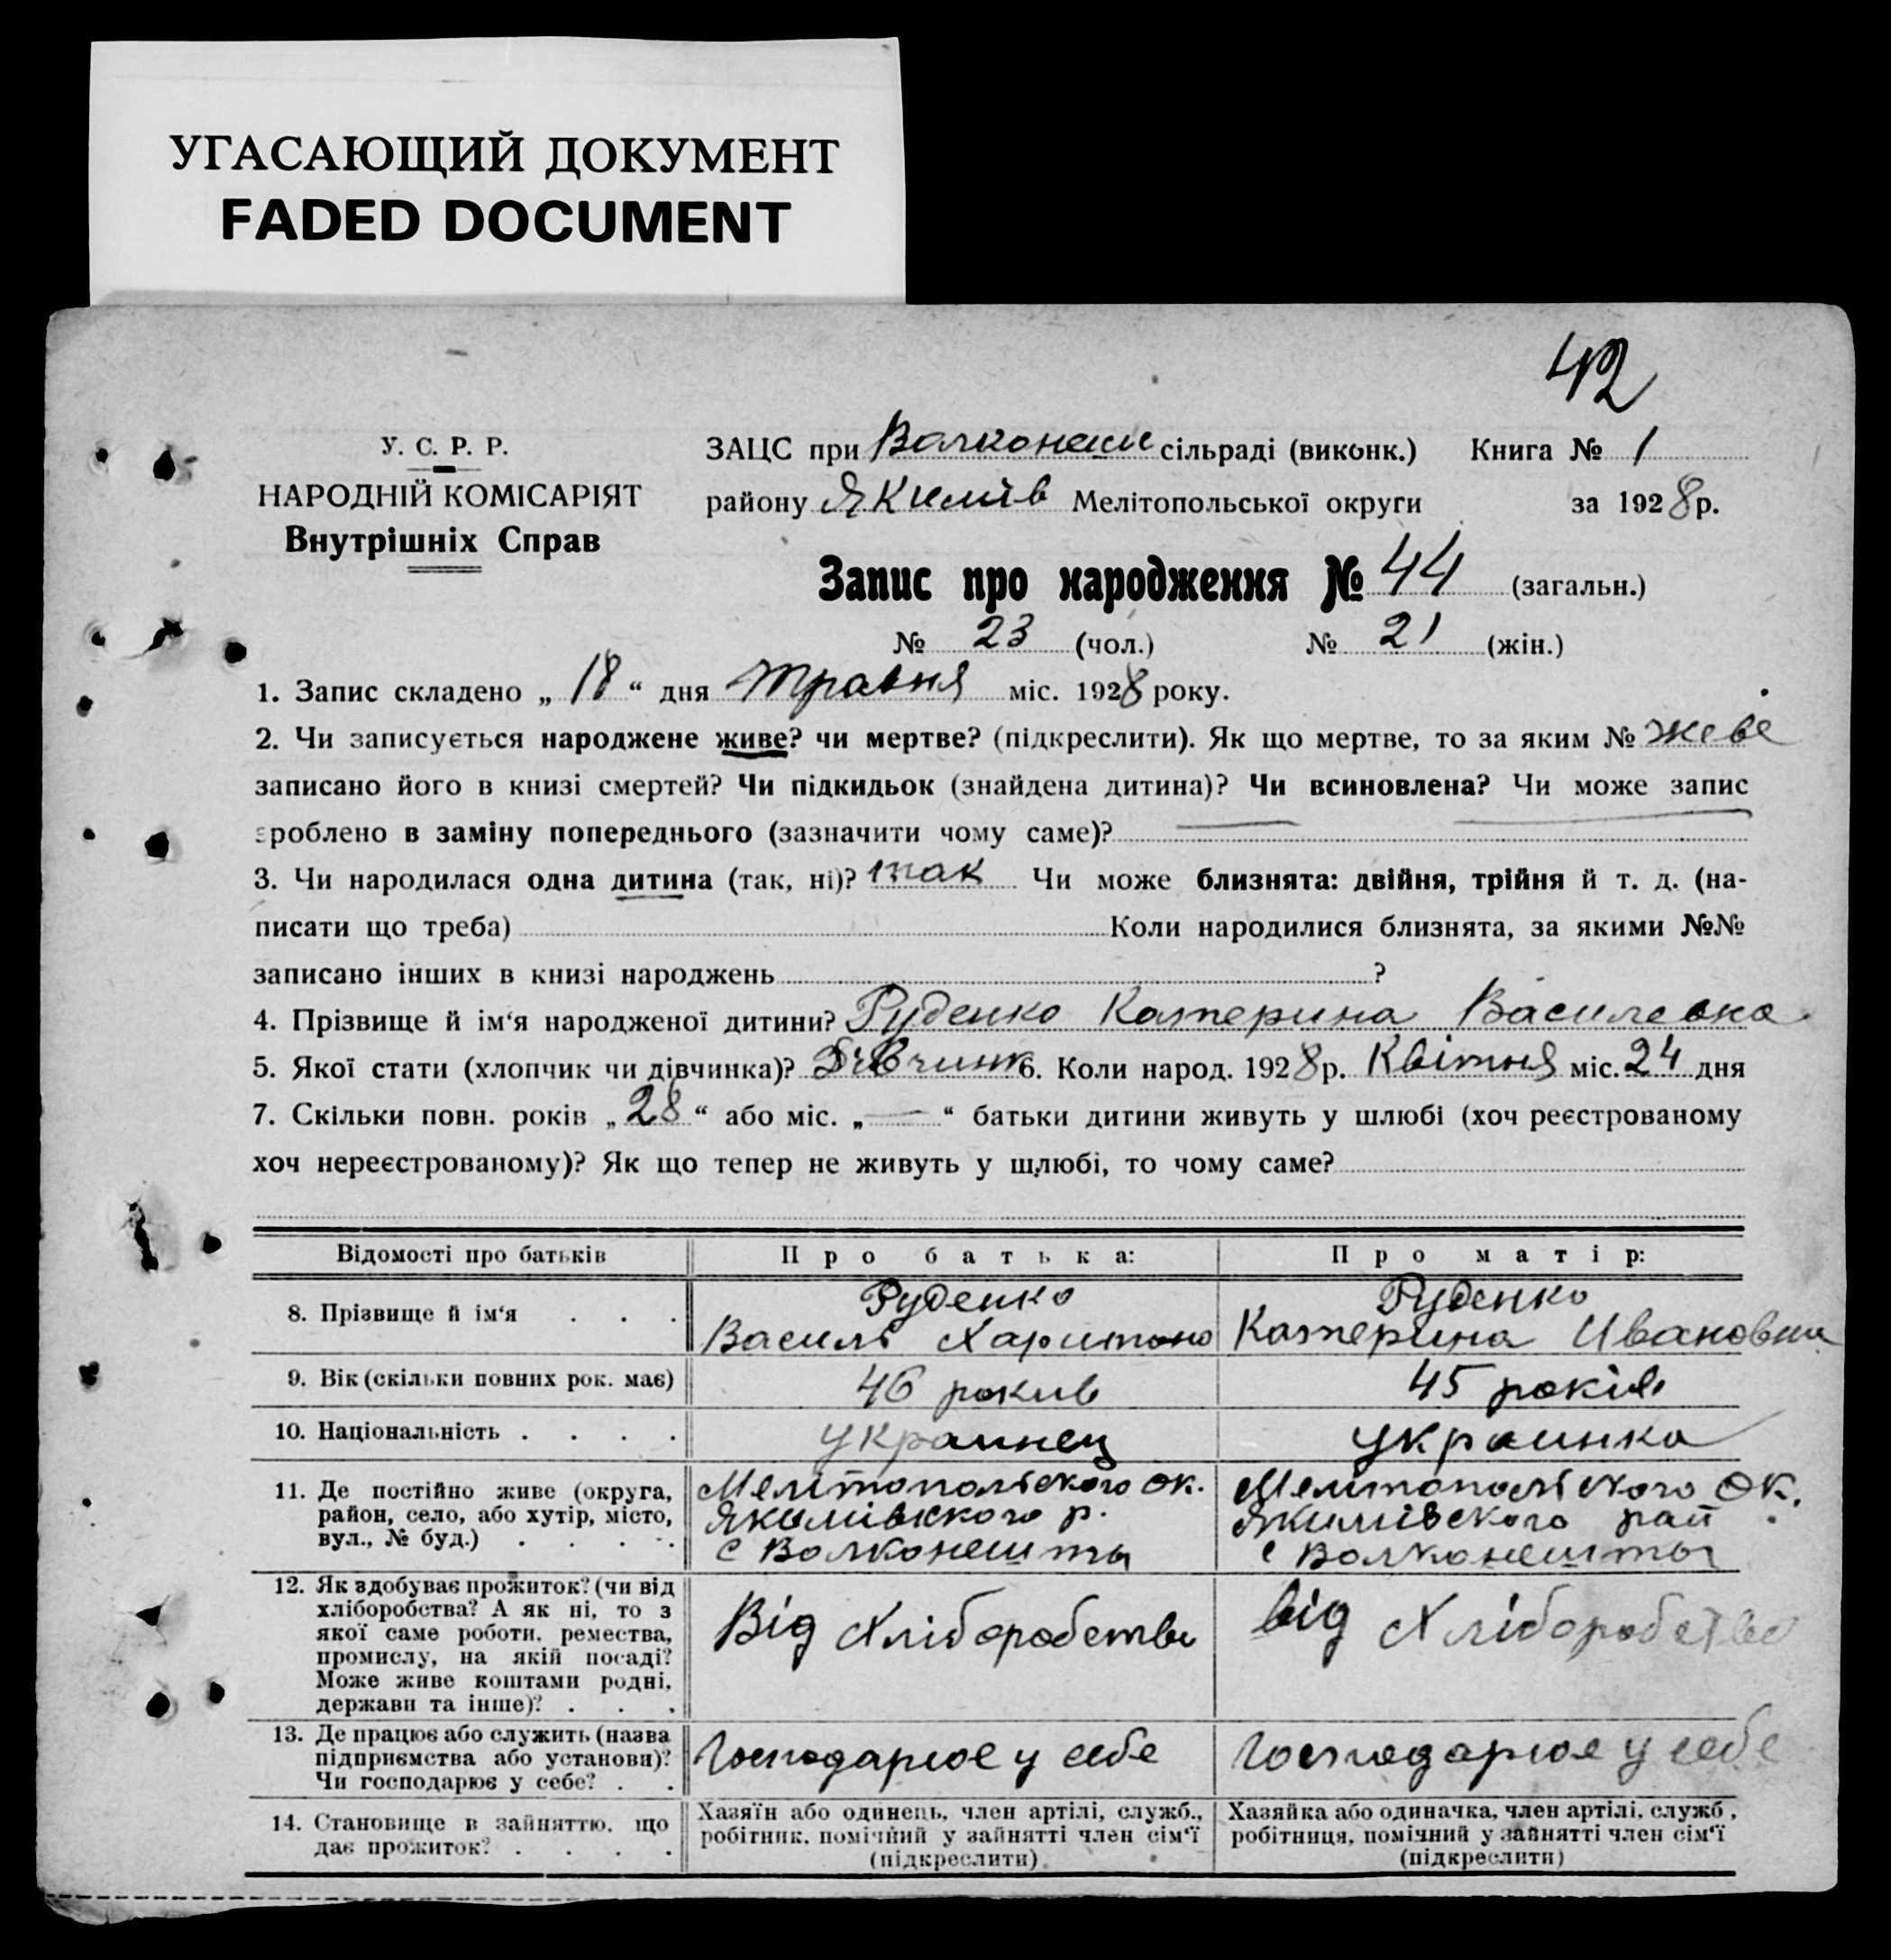 УГАСАЮЩИЙ ДОКУМЕНТ
FADED DOCUMENT
42
У. С. Р. Р.
НАРОДНІЙ КОМІСАРІЯТ
Внутрішніх Справ
ЗАЦС при Волконеш сільраді (виконк.) Книга № 1
району Якимів Мелітопольської округи за 1928 р.
Запис про народження № 44 (загальн.)
№ 23 (чол.) № 21 (жін.)
1. Запис складено „ 18 “ дня травня міс. 1928 року.
2. Чи записується народжене живе? чи мертве? (підкреслити). Як що мертве, то за яким № живе
записано його в книзі смертей? Чи підкидьок (знайдена дитина)? Чи всиновлена? Чи може запис
зроблено в заміну попереднього (зазначити чому саме)?
3. Чи народилася одна дитина (так, ні)? так Чи може близнята: двійня, трійня й т. д. (на-
писати що треба) Коли народилися близнята, за якими №№
записано інших в книзі народжень ?
4. Прізвище й ім‘я народженої дитини? Руденко Катерина Василевна
5. Якої стати (хлопчик чи дівчинка)? Дівчинк 6. Коли народ. 1928 р. Квітня міс. 24 дня
7. Скільки повн. років „ 28 “ або міс. „ — “ батьки дитини живуть у шлюбі (хоч реєстрованому
хоч нереєстрованому)? Як що тепер не живуть у шлюбі, то чому саме?
Відомості про батьків Про батька: Про матір:
8. Прізвище й ім‘я . . . Руденко Руденко
Василь Харитоно Катерина Ивановна
9. Вік (скільки повних рок. має) 46 рокив 45 років
10. Національність . . . . украинец украинка
11. Де постійно живе (округа, Мелітопольского ок. Мелітопольского ок.
район, село, або хутір, місто, Якимівского р. Якимівского рай.
вул., № буд.) . . . . с Волконешты с Волконешты
12. Як здобуває прожиток? (чи від
хліборобства? А як ні, то з
якої саме роботи, ремества, Від Хліборобства від Хліборобства
промислу, на якій посаді?
Може живе коштами родні,
держави та інше)? . . .
13. Де працює або служить (назва
підприємства або установи)? Господарює у себе Господарює у себе
Чи господарює у себе? . .
14. Становище в зайняттю, що Хазяїн або одинець, член артілі, служб., Хазяйка або одиначка, член артілі, служб.,
дає прожиток? . . . . робітник, помічний у зайнятті член сім‘ї робітниця, помічний у зайнятті член сім‘ї
(підкреслити) (підкреслити)